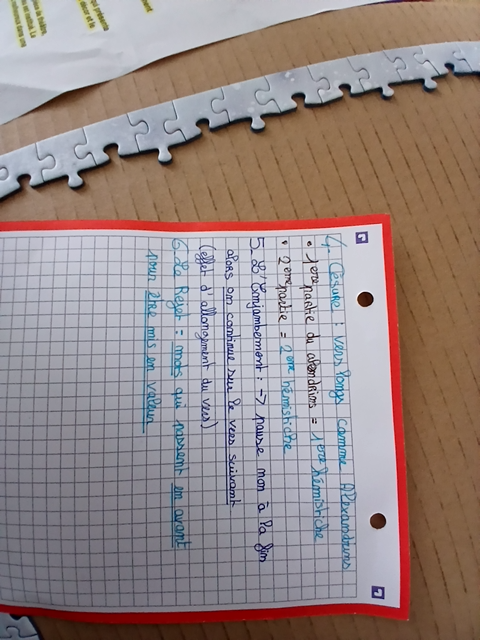 4- Césure : vers longs comme Alexandrins
• 1ère partie du alexandrins = 1ère hémistiche
• 2ème partie = 2ème hémistiche
5 L'Enjambement : -> pause non à la fin
alors on continue sur le vers suivant
(effet d'allongement du vers)
6 Le Rejet = mots qui passent en avant
pour être mis en valeur